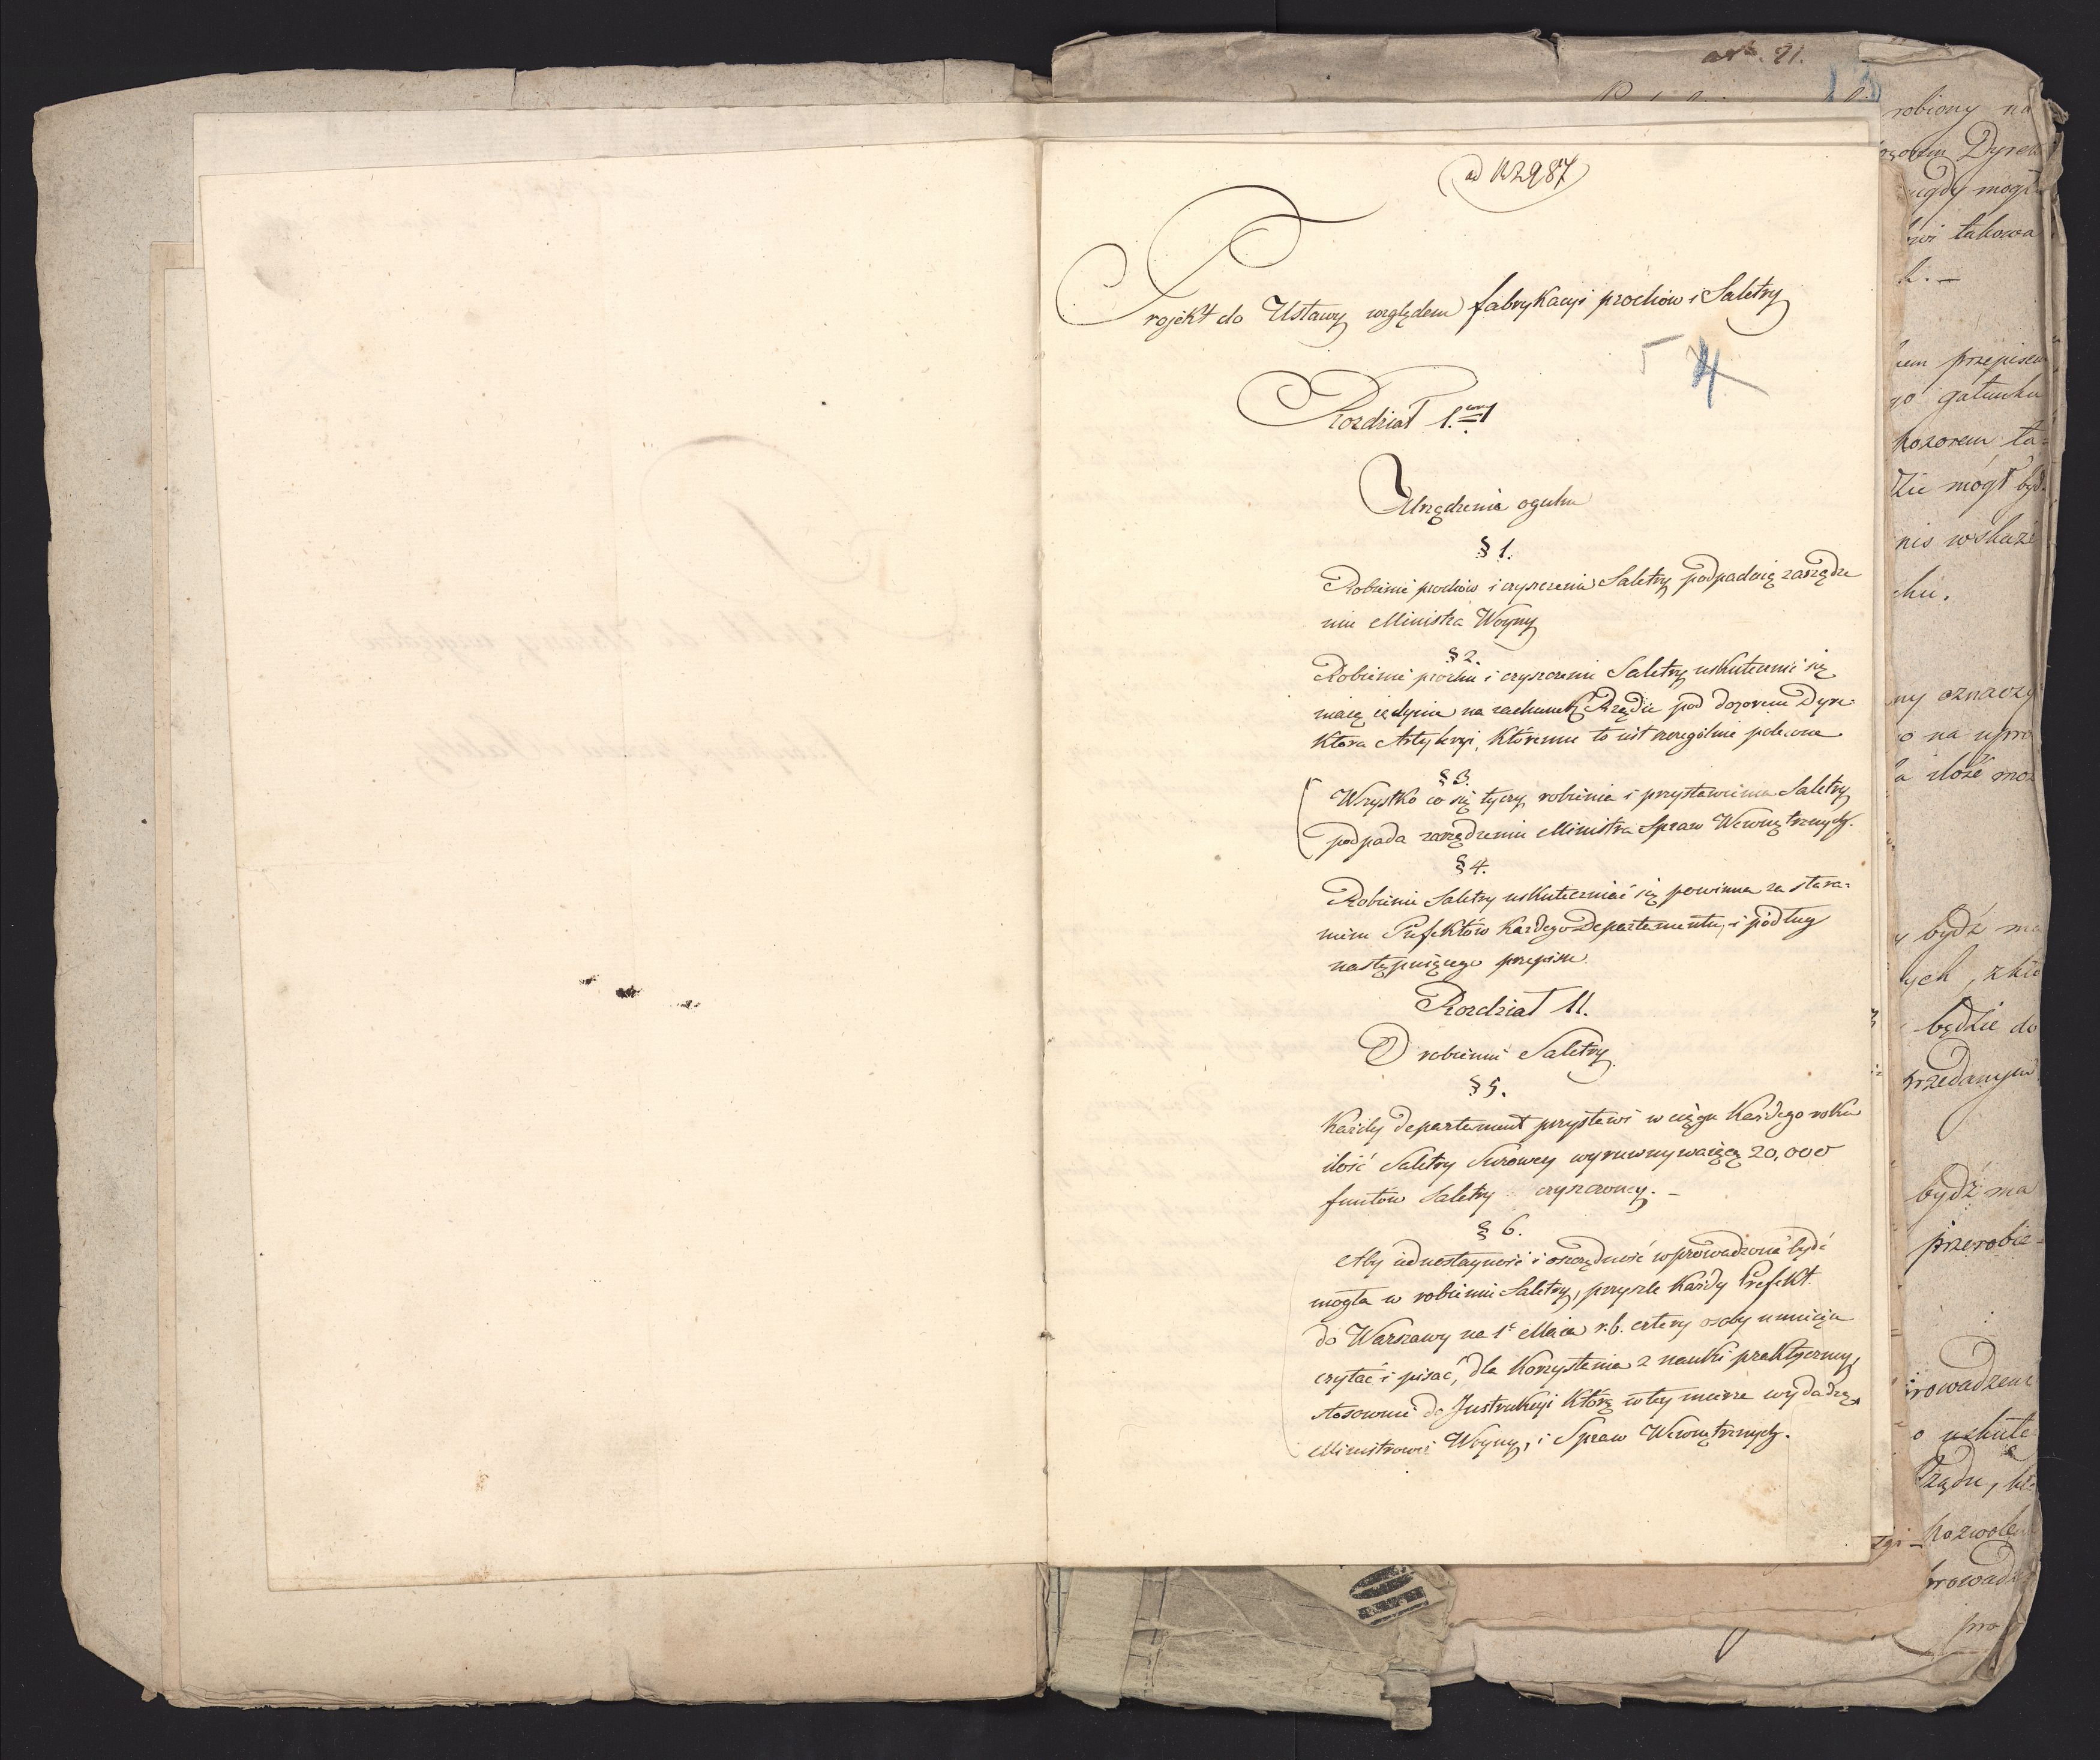 ad N 2987
Projekt do Ustawy względem fabrykacyi prochów i Saletry
4
Rozdział 1.wszy
Urządzenia ogulne
§ 1.
Robienie prochów i czyszczenie Saletry podpadaią zarządze
niu Ministra Woyny
§ 2.
Robienie prochu i czyszczenie Saletry uskutecznić się
maią iedynie na rachunek Rządu pod dozorem Dyre-
ktora Artyleryi, któremu to iest szczególnie polecone
§ 3.
Wszystko co się tyczy robienia i przystawienia Saletry
podpada zarządzeniu Ministra Spraw Wewnętrznych.
§ 4.
Robienie Saletry uskuteczniać się powinno za stara=
niem Prefektów każdego Departamentu, i podług
następuiącego przepisu.
Rozdział II.
O robieniu Saletry
§ 5.
Każdy departament przystawi w ciągu każdego roku
ilość Saletry Surowey wyruwnywaiącą 20,000
funtów Saletry czyszczoney. –
§ 6.
Aby iednostayność i oszczędność wprowadzona bydź
mogła w robieniu Saletry, przyszle każdy Prefekt
do Warszawy na 1º Maia r.b. cztery osoby umieiące
czytać i pisać, dla korzystania z nauki praktyczney,
stosownie do Instrukcyi którą w tey mierze wydadzą
Ministrowie Woyny, i Spraw Wewnętrznych.
robiony na
Dyrek
takowa
przepisem
gatunku
mógł być
nie wskaże
chu.
ny oznaczy
o na upro
a ilość moż
bydź ma
ych, z któ
będzie do
przedanym
bydź ma
przerobie-
prowadzene
o uskute
Rządu, kt-
pozwole
prowadz
pro